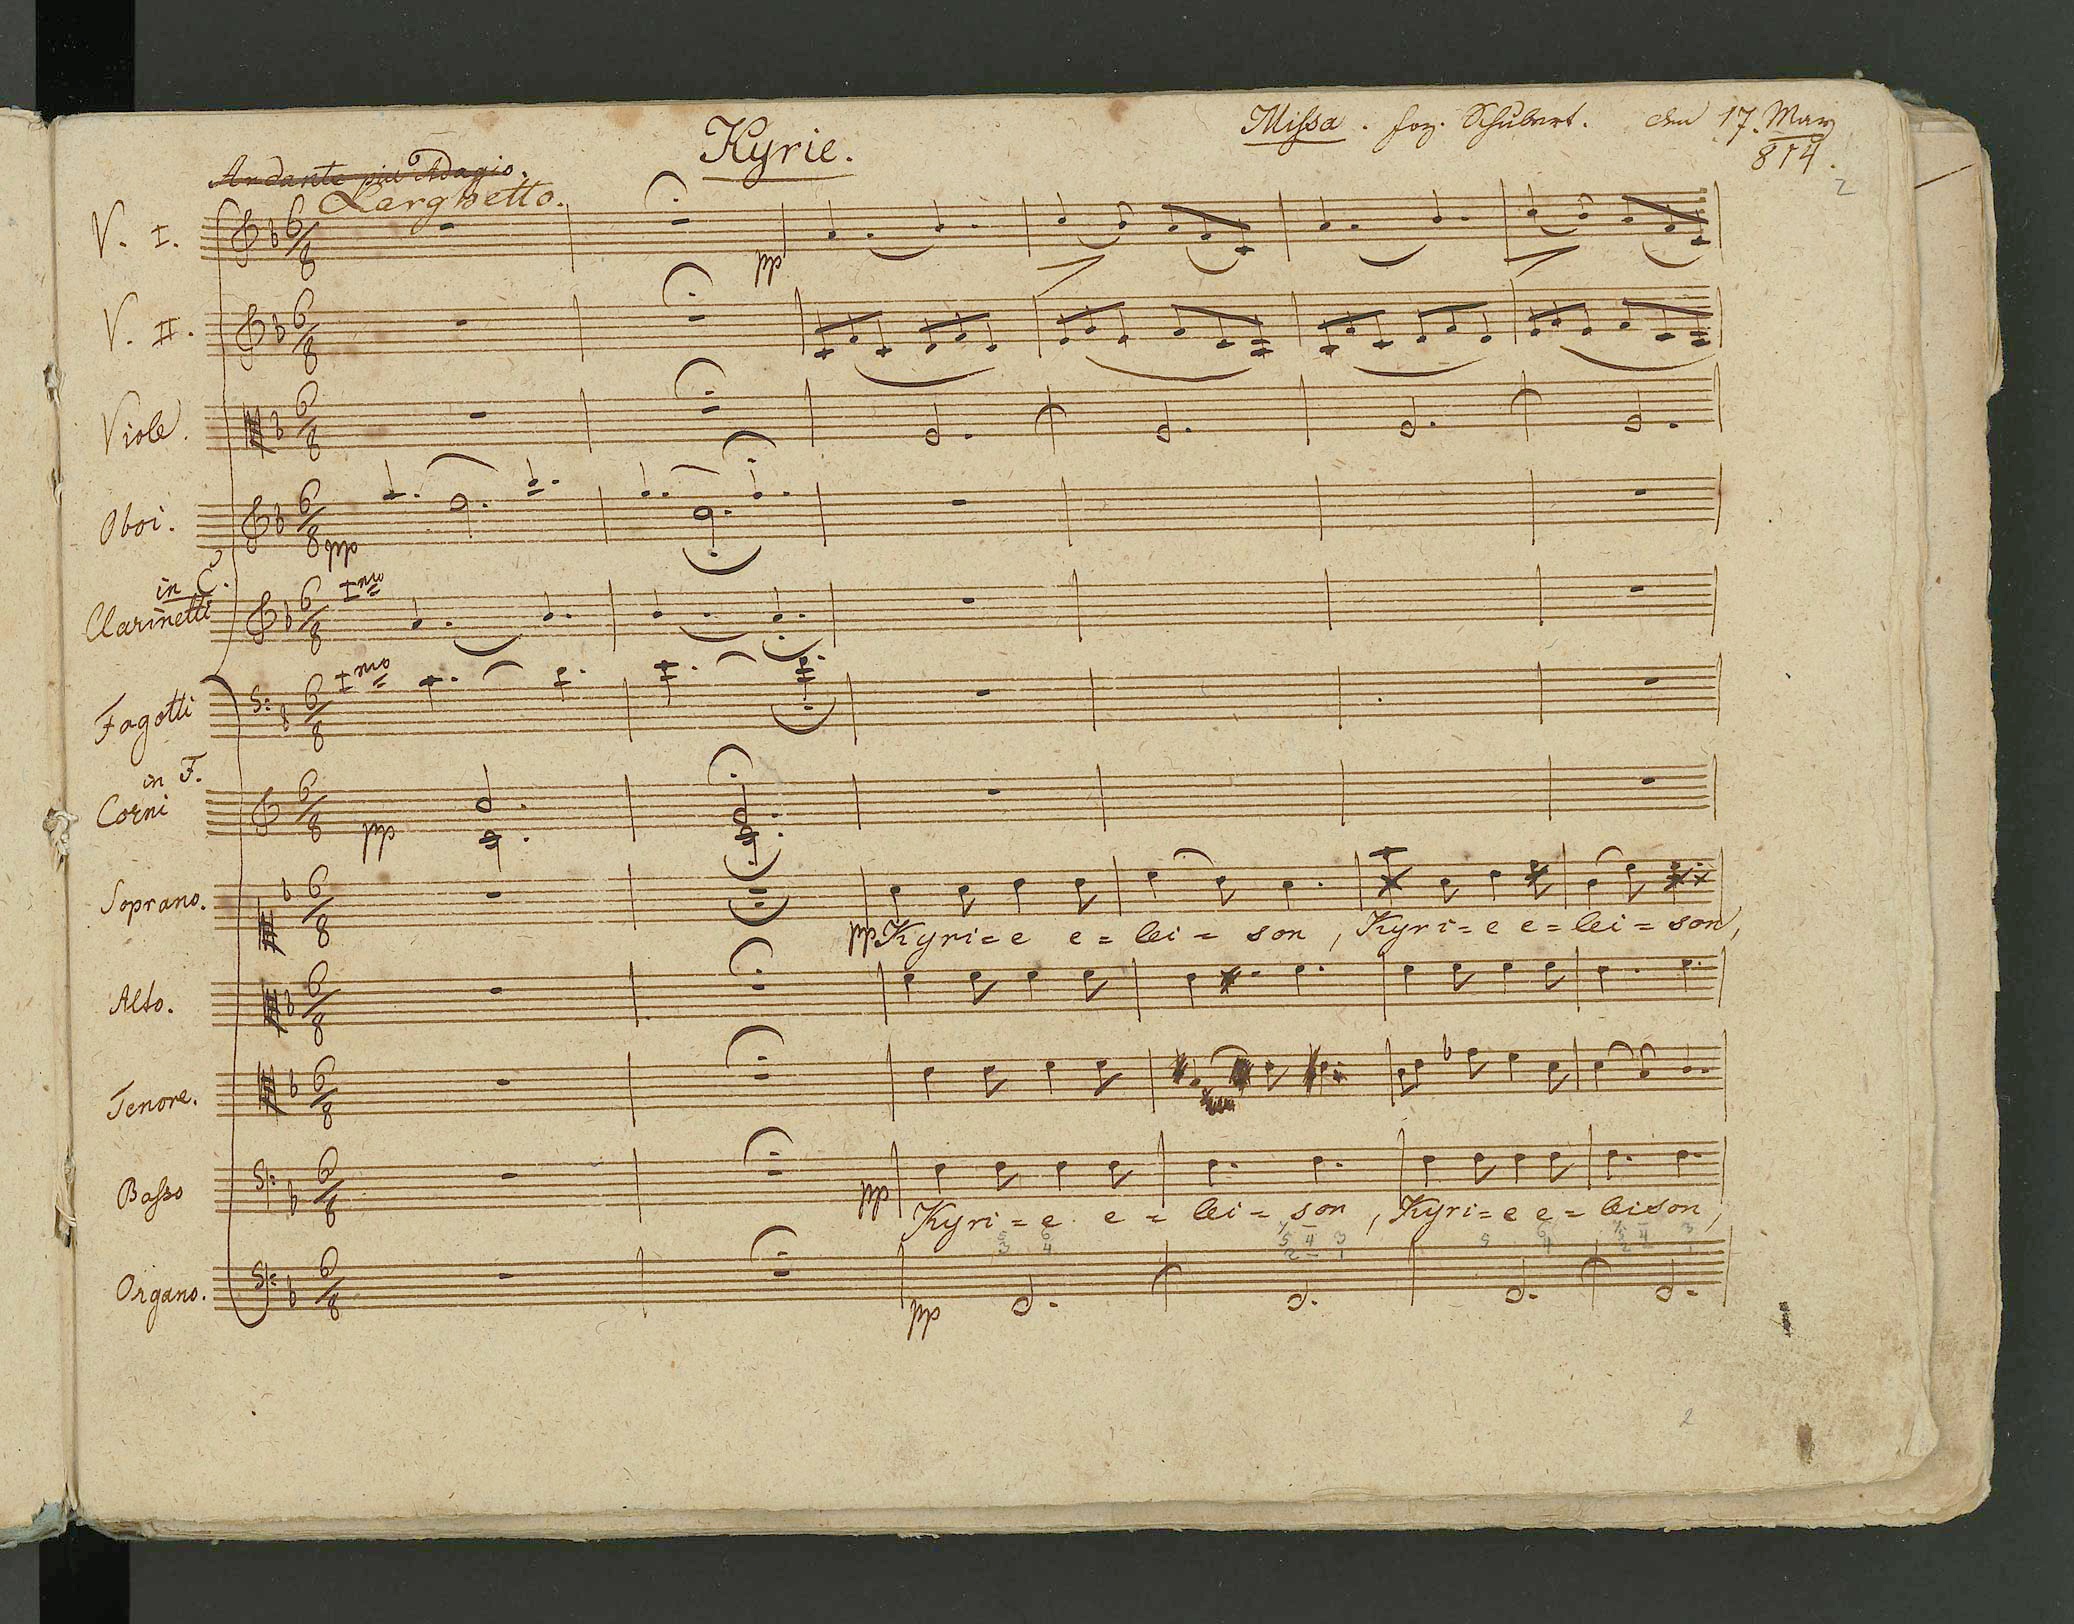 Missa. frz. Schubert. den 17. May
814.
2
Kyrie.
Andante più Adagio.
Larghetto.
V. I. 6/8 pp
V. II. 6/8
Viole. 6/8
Oboi. 6/8 pp
in C.
Clarinetti 6/8 Imo
Fagotti 6/8 Imo
in F.
Corni 6/8 pp
Soprano. 6/8
pp Kyri=e e=lei=son, Kyri=e e=lei=son,
Alto. 6/8
Tenore. 6/8
Basso 6/8 pp
Kyri=e e=lei=son, Kyri=e e=leison,
Organo. 6/8 pp
2